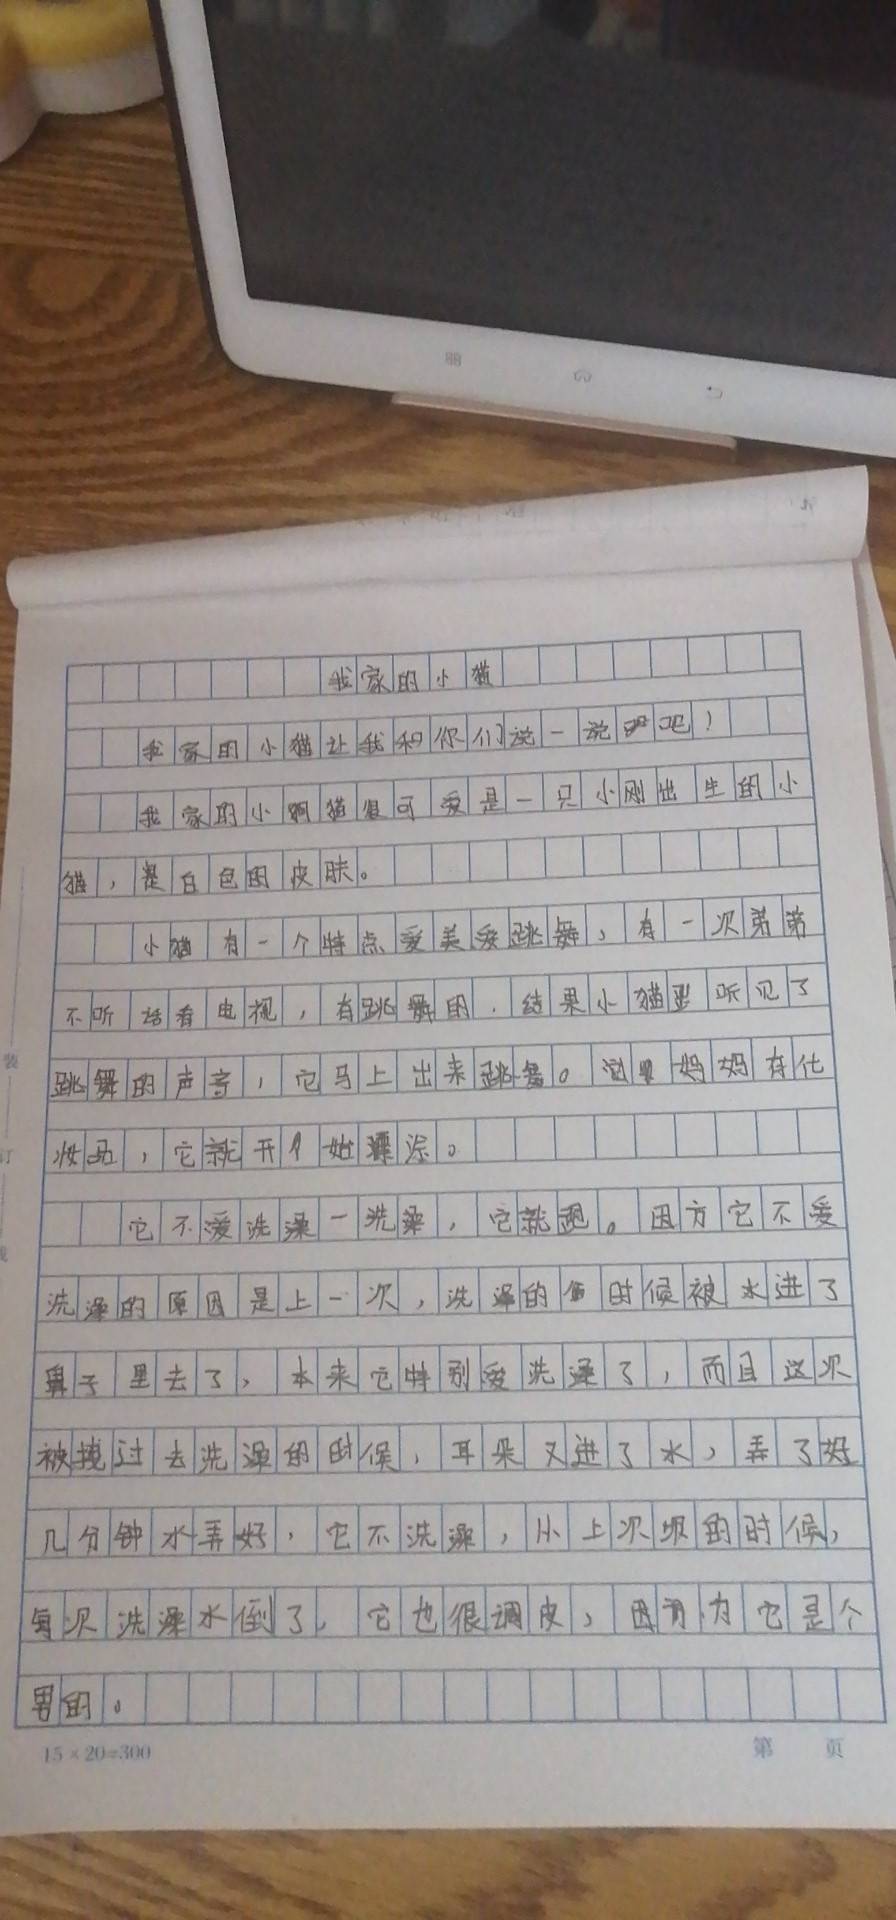 我家的小猫
我家的小猫让我和你们说一说吧！
我家的小猫很可爱是一只小刚出生的小
猫，是白色的皮肤。
小猫有一个特点爱美爱跳舞，有一次弟弟
不听话看电视，有跳舞的，结果小猫听见了
跳舞的声音，它马上出来跳舞。妈妈在化
妆品，它就开始涂。
它不爱洗澡一洗澡，它就跑。因为它不爱
洗澡的原因是上一次，洗澡的时候被水进了
鼻子里去了，本来它特别爱洗澡了，而且这次
被拽过去洗澡的时候，耳朵又进了水，弄了好
几分钟水弄好，它不洗澡，从上次的时候，
每次洗澡水倒了，它也很调皮，因为它是个
男的。
装
订
15×20=300
第 页